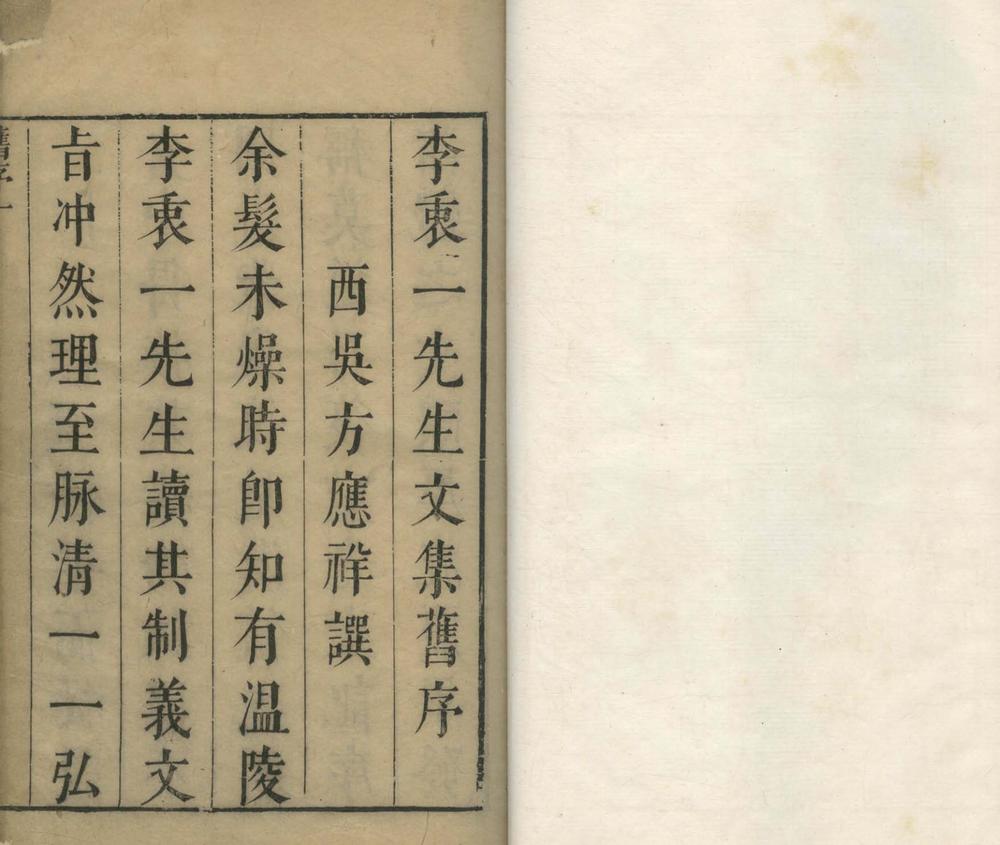 李衷一先生文集舊序
西吳方應祥譔
余髮未燥時卽知有温陵
李衷一先生讀其制義文
旨冲然理至脉清一一弘
舊序一